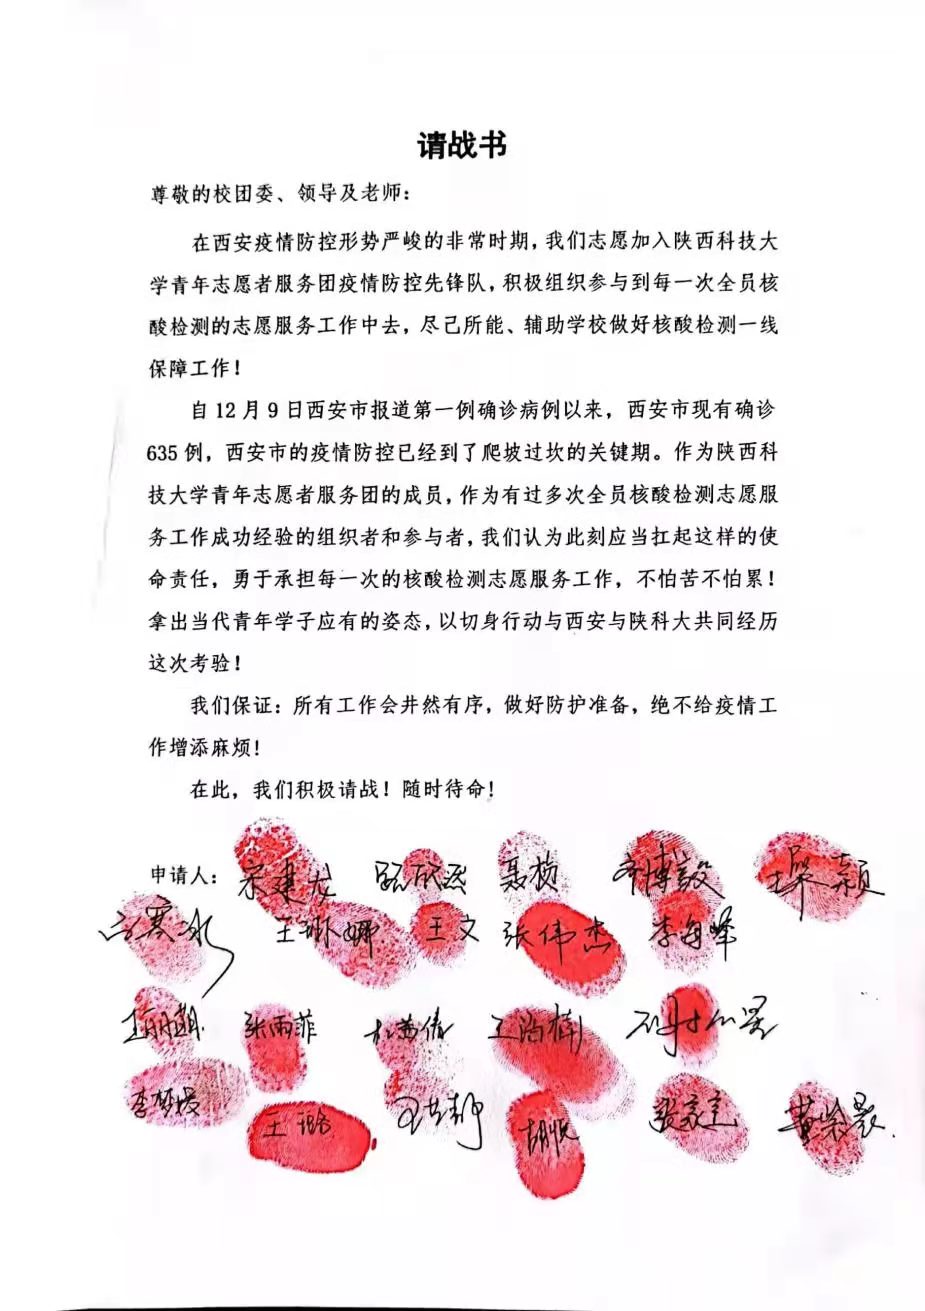 请战书
尊敬的校团委、领导及老师：
在西安疫情防控形势严峻的非常时期，我们志愿加入陕西科技大
学青年志愿者服务团疫情防控先锋队，积极组织参与到每一次全员核
酸检测的志愿服务工作中去，尽己所能、辅助学校做好核酸检测一线
保障工作！
自12月9日西安市报道第一例确诊病例以来，西安市现有确诊
635例，西安市的疫情防控已经到了爬坡过坎的关键期。作为陕西科
技大学青年志愿者服务团的成员，作为有过多次全员核酸检测志愿服
务工作成功经验的组织者和参与者，我们认为此刻应当扛起这样的使
命责任，勇于承担每一次的核酸检测志愿服务工作，不怕苦不怕累！
拿出当代青年学子应有的姿态，以切身行动与西安与陕科大共同经历
这次考验！
我们保证：所有工作会井然有序，做好防护准备，绝不给疫情工
作增添麻烦！
在此，我们积极请战！随时待命！
申请人：宋建龙 聂桢 齐博毅
王琳娜 王文 张伟杰 李海峰
张雨菲
李梦媛 王璐 胡悦 张家主